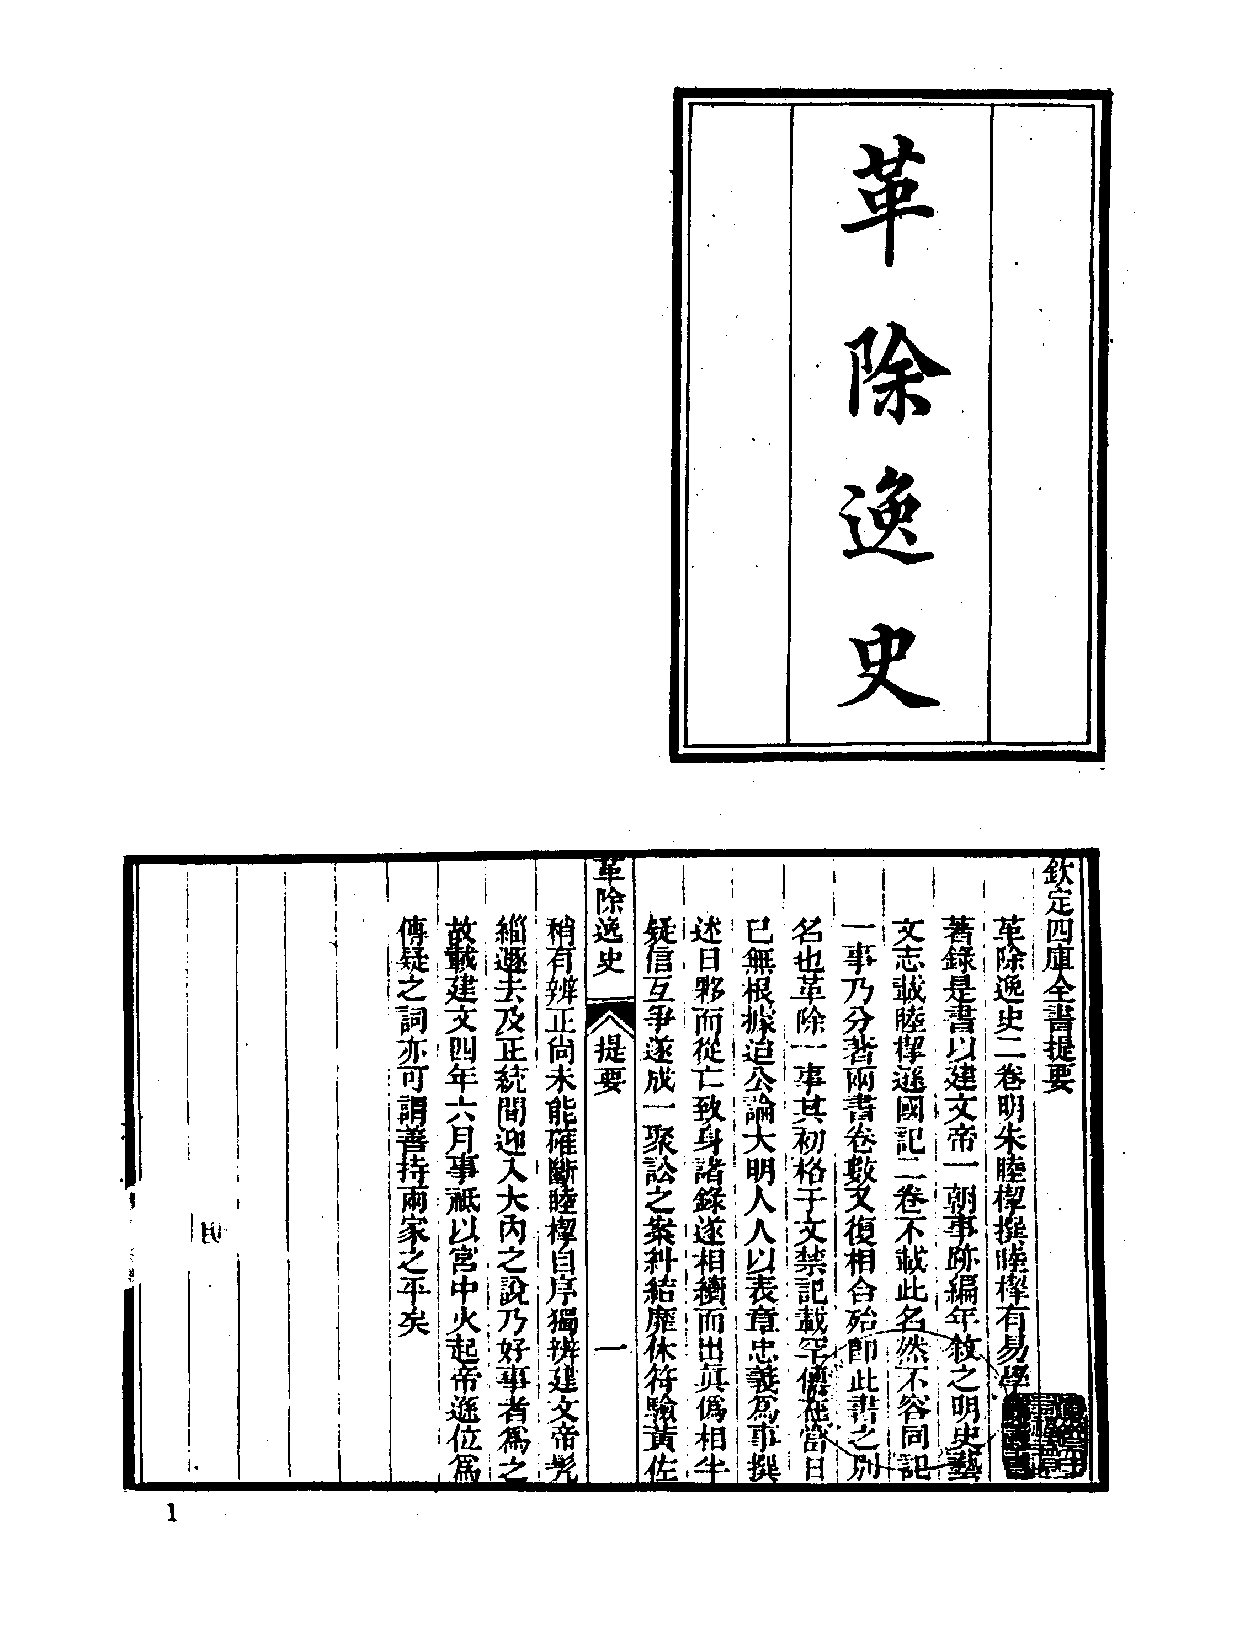 革除逸史
欽定四庫全書提要
革除逸史二卷明朱睦㮮撰睦㮮有易學
著錄是書以建文帝一朝事跡編年敘之明史藝
文志載睦㮮遜國記二卷不載此名然不容同記
一事乃分著兩書卷數又復相合殆即此書之別
名也革除一事其初格于文禁記載罕傳在當日
已無根據迨公論大明人人以表章忠義為事撰
述日夥而從亡致身諸錄遂相續而出真偽相半
疑信互爭遂成一聚訟之案糾結靡休符驗黃佐
革除逸史 提要 一
稍有辨正尚未能確斷睦㮮自序獨辨建文帝髠
緇遯去及正統間迎入大內之說乃好事者為之
故載建文四年六月事祗以宮中火起帝遜位為
傳疑之詞亦可謂善持兩家之平矣
1